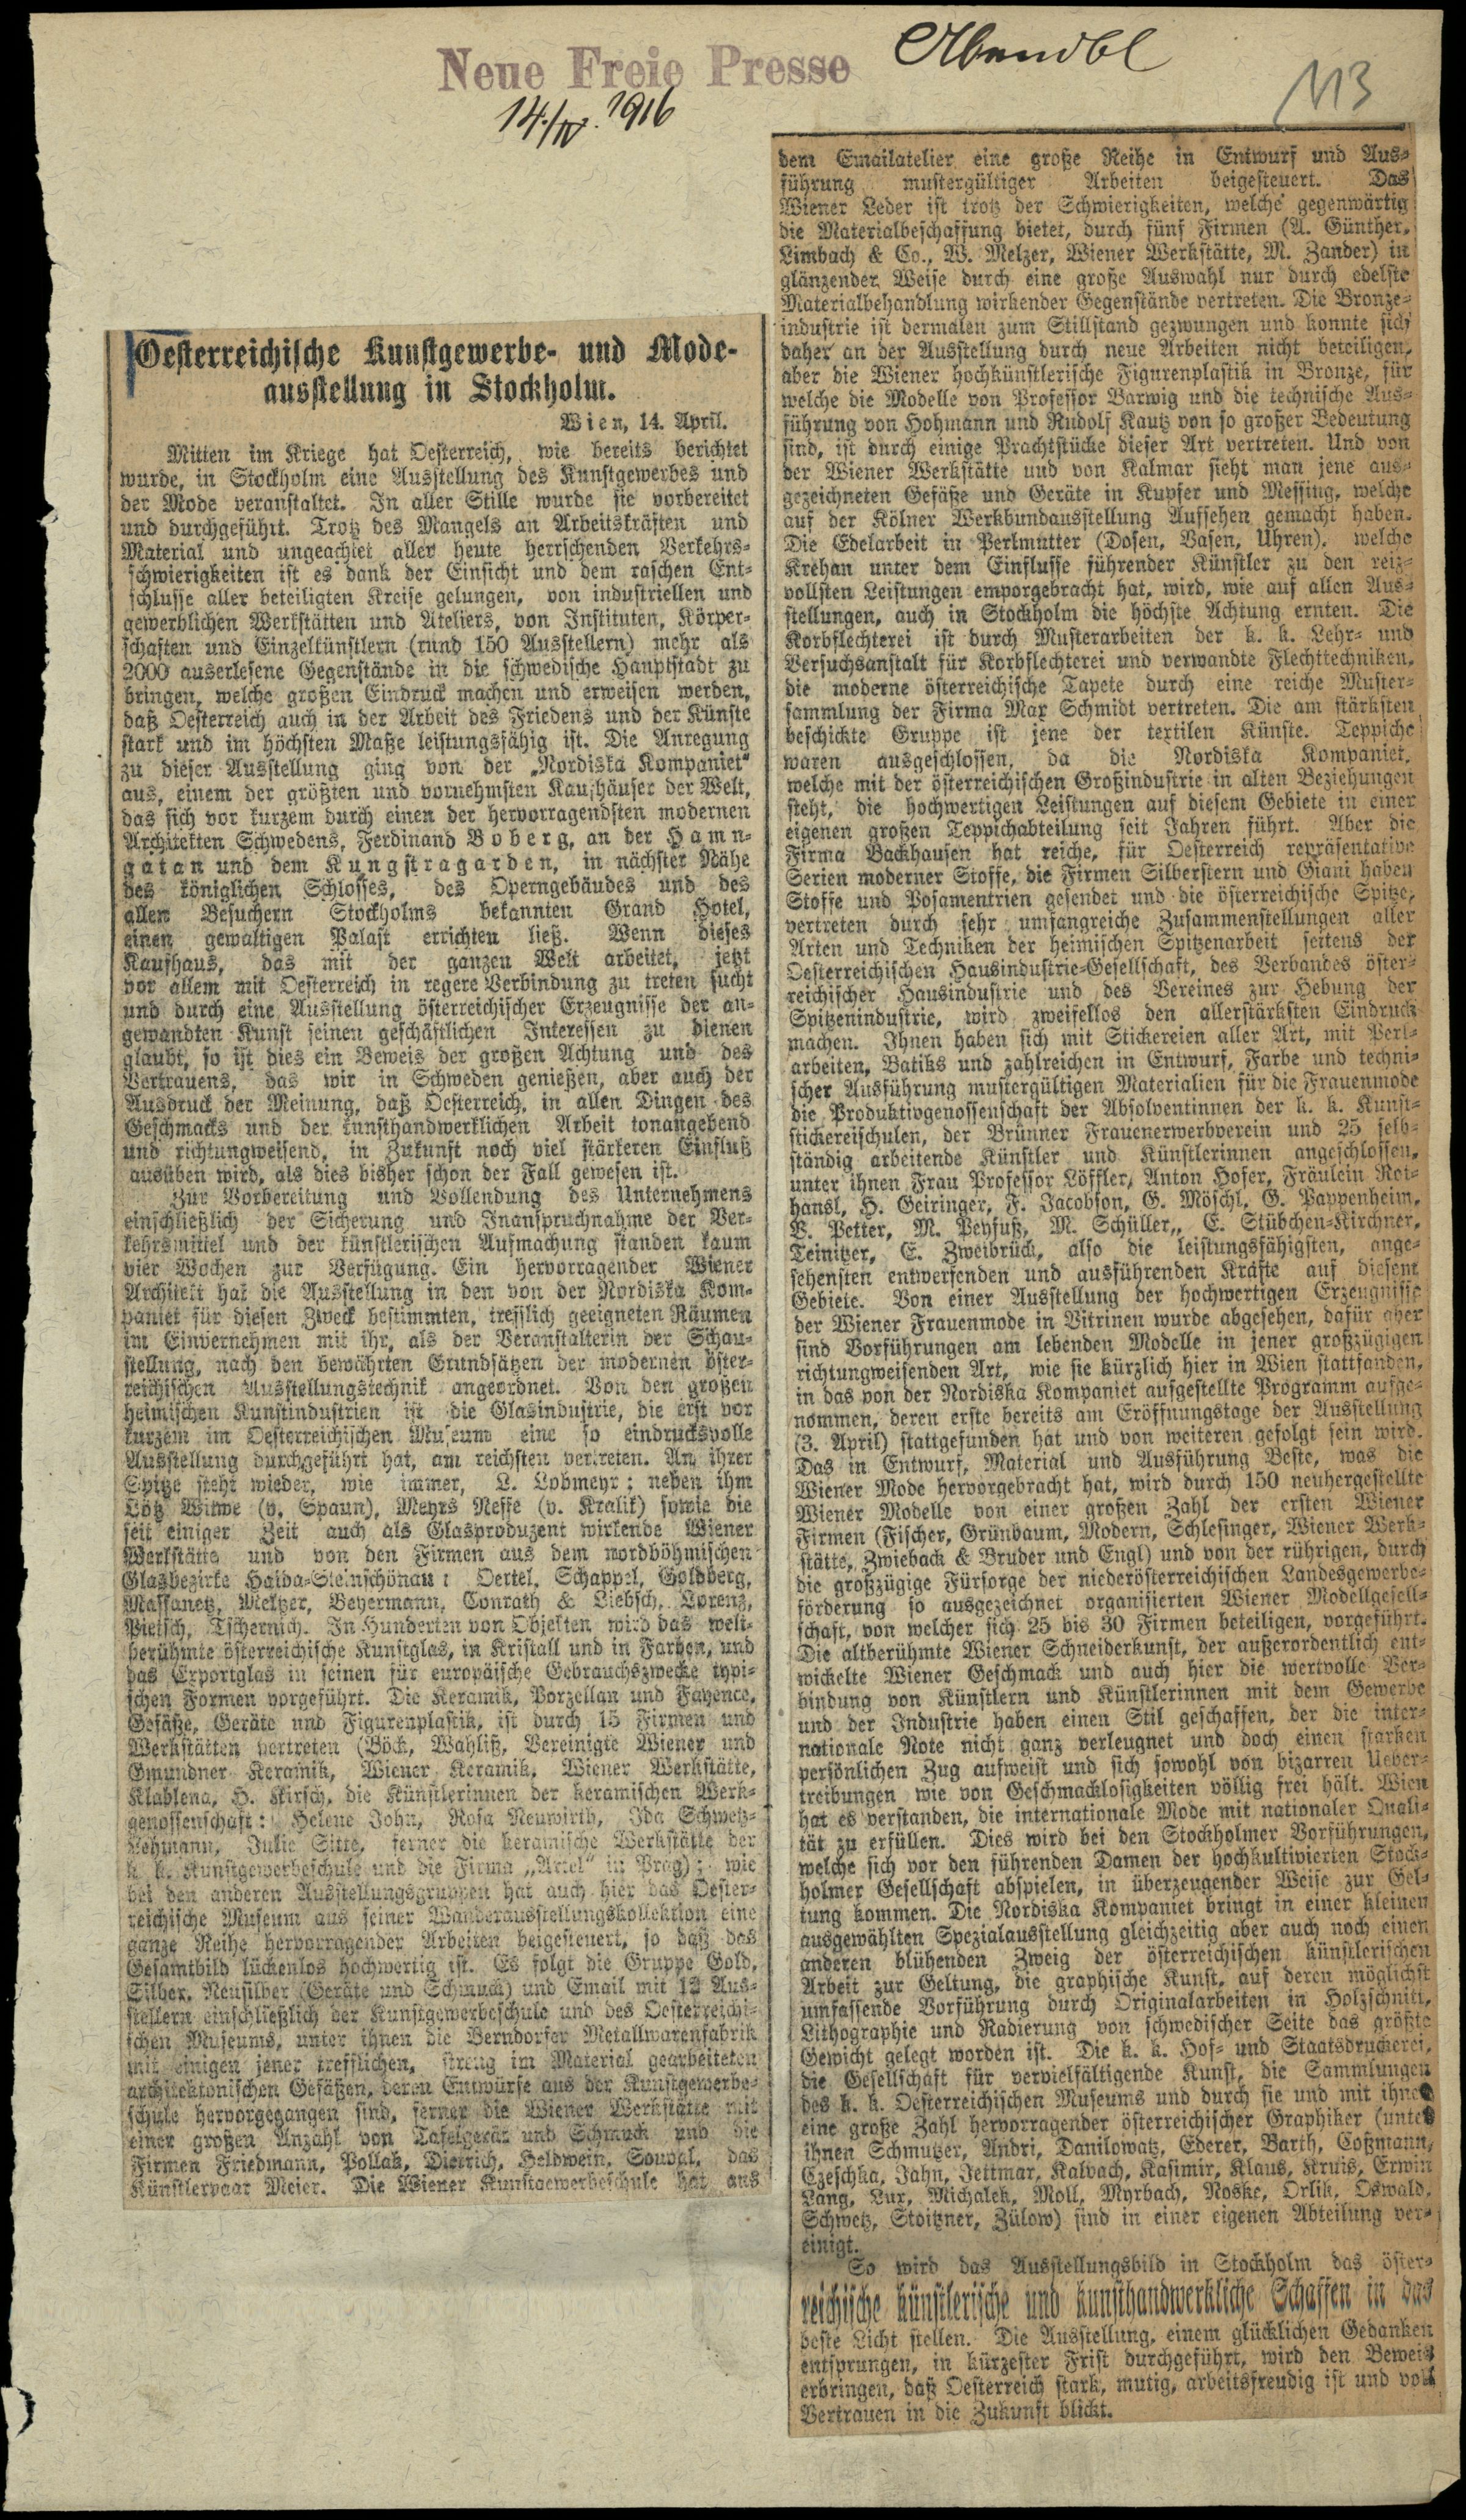 Neue Freie Presse
Abendbl
14./IV. 1916
113
Oesterreichische Kunstgewerbe- und Mode-
ausstellung in Stockholm.
Wien, 14. April.
Mitten im Kriege hat Oesterreich, wie bereits berichtet
wurde, in Stockholm eine Ausstellung des Kunstgewerbes und
der Mode veranstaltet. In aller Stille wurde sie vorbereitet
und durchgeführt. Trotz des Mangels an Arbeitskräften und
Material und ungeachtet aller heute herrschenden Verkehrs-
schwierigkeiten ist es dank der Einsicht und dem raschen Ent-
schlusse aller beteiligten Kreise gelungen, von industriellen und
gewerblichen Werkstätten und Ateliers, von Instituten, Körper-
schaften und Einzelkünstlern (rund 150 Ausstellern) mehr als
2000 auserlesene Gegenstände in die schwedische Hauptstadt zu
bringen, welche großen Eindruck machen und erweisen werden,
daß Oesterreich auch in der Arbeit des Friedens und der Künste
stark und im höchsten Maße leistungsfähig ist. Die Anregung
zu dieser Ausstellung ging von der „Nordiska Kompaniet"
aus, einem der größten und vornehmsten Kaufhäuser der Welt,
das sich vor kurzem durch einen der hervorragendsten modernen
Architekten Schwedens, Ferdinand Boberg, an der Hamn-
gatan und dem Kungstragarden, in nächster Nähe
des königlichen Schlosses, des Operngebäudes und des
allen Besuchern Stockholms bekannten Grand Hotel,
einen gewaltigen Palast errichten ließ. Wenn dieses
Kaufhaus, das mit der ganzen Welt arbeitet, jetzt
vor allem mit Oesterreich in regere Verbindung zu treten sucht
und durch eine Ausstellung österreichischer Erzeugnisse der an-
gewandten Kunst seinen geschäftlichen Interessen zu dienen
glaubt, so ist dies ein Beweis der großen Achtung und des
Vertrauens, das wir in Schweden genießen, aber auch der
Ausdruck der Meinung, daß Oesterreich, in allen Dingen des
Geschmacks und der kunsthandwerklichen Arbeit tonangebend
und richtungweisend, in Zukunft noch viel stärkeren Einfluß
ausüben wird, als dies bisher schon der Fall gewesen ist.
Zur Vorbereitung und Vollendung des Unternehmens
einschließlich der Sicherung und Inanspruchnahme der Ver-
kehrsmittel und der künstlerischen Aufmachung standen kaum
vier Wochen zur Verfügung. Ein hervorragender Wiener
Architekt hat die Ausstellung in den von der Nordiska Kom-
paniet für diesen Zweck bestimmten, trefflich geeigneten Räumen
im Einvernehmen mit ihr, als der Veranstalterin der Schau-
stellung, nach den bewährten Grundsätzen der modernen öster-
reichischen Ausstellungstechnik angeordnet. Von den großen
heimischen Kunstindustrien ist die Glasindustrie, die erst vor
kurzem im Oesterreichischen Museum eine so eindrucksvolle
Ausstellung durchgeführt hat, am reichsten vertreten. An ihrer
Spitze steht wieder, wie immer, L. Lobmeyr; neben ihm
Lötz Witwe (v. Spaun), Meyrs Neffe (v. Kralik) sowie die
seit einiger Zeit auch als Glasproduzent wirkende Wiener
Werkstätte und von den Firmen aus dem nordböhmischen
Glasbezirke Haida-Steinschönau: Oertel, Schappel, Goldberg,
Massanetz, Meltzer, Beyermann, Conrath & Liebsch, Lorenz,
Pietsch, Tschernich. In Hunderten von Objekten wird das welt-
berühmte österreichische Kunstglas, in Kristall und in Farben, und
das Exportglas in seinen für europäische Gebrauchszwecke typi-
schen Formen vorgeführt. Die Keramik, Porzellan und Fayence,
Gefäße, Geräte und Figurenplastik, ist durch 15 Firmen und
Werkstätten vertreten (Böck, Wahliß, Vereinigte Wiener und
Gmundner Keramik, Wiener Keramik, Wiener Werkstätte,
Klablena, H. Kirsch, die Künstlerinnen der keramischen Werk-
genossenschaft: Helene John, Rosa Neuwirth, Ida Schwetz-
Lehmann, Julie Sitte, ferner die keramische Werkstätte der
k. k. Kunstgewerbeschule und die Firma „Artel" in Prag); wie
bei den anderen Ausstellungsgruppen hat auch hier das Oester-
reichische Museum aus seiner Wanderausstellungskollektion eine
ganze Reihe hervorragender Arbeiten beigesteuert, so daß das
Gesamtbild lückenlos hochwertig ist. Es folgt die Gruppe Gold,
Silber, Neusilber (Geräte und Schmuck) und Email mit 12 Aus-
stellern einschließlich der Kunstgewerbeschule und des Oesterreichi-
schen Museums, unter ihnen die Berndorfer Metallwarenfabrik
mit einigen jener trefflichen, streng im Material gearbeiteten
architektonischen Gefäßen, deren Entwürfe aus der Kunstgewerbe-
schule hervorgegangen sind, ferner die Wiener Werkstätte mit
einer großen Anzahl von Tafelgerät und Schmuck und die
Firmen Friedmann, Pollak, Dietrich, Heldwein, Souval, das
Künstlerpaar Meier. Die Wiener Kunstgewerbeschule hat aus
dem Emailatelier eine große Reihe in Entwurf und Aus-
führung mustergültiger Arbeiten beigesteuert. Das
Wiener Leder ist trotz der Schwierigkeiten, welche gegenwärtig
die Materialbeschaffung bietet, durch fünf Firmen (A. Günther,
Limbach & Co., W. Melzer, Wiener Werkstätte, M. Zander) in
glänzender Weise durch eine große Auswahl nur durch edelste
Materialbehandlung wirkender Gegenstände vertreten. Die Bronze-
industrie ist dermalen zum Stillstand gezwungen und konnte sich
daher an der Ausstellung durch neue Arbeiten nicht beteiligen,
aber die Wiener hochkünstlerische Figurenplastik in Bronze, für
welche die Modelle von Professor Barwig und die technische Aus-
führung von Hohmann und Rudolf Kautz von so großer Bedeutung
sind, ist durch einige Prachtstücke dieser Art vertreten. Und von
der Wiener Werkstätte und von Kalmar sieht man jene aus-
gezeichneten Gefäße und Geräte in Kupfer und Messing, welche
auf der Kölner Werkbundausstellung Aufsehen gemacht haben.
Die Edelarbeit in Perlmutter (Dosen, Vasen, Uhren), welche
Krehan unter dem Einflusse führender Künstler zu den reiz-
vollsten Leistungen emporgebracht hat, wird, wie auf allen Aus-
stellungen, auch in Stockholm die höchste Achtung ernten. Die
Korbflechterei ist durch Musterarbeiten der k. k. Lehr- und
Versuchsanstalt für Korbflechterei und verwandte Flechttechniken,
die moderne österreichische Tapete durch eine reiche Muster-
sammlung der Firma Max Schmidt vertreten. Die am stärksten
beschickte Gruppe ist jene der textilen Künste. Teppiche
waren ausgeschlossen, da die Nordiska Kompaniet,
welche mit der österreichischen Großindustrie in alten Beziehungen
steht, die hochwertigen Leistungen auf diesem Gebiete in einer
eigenen großen Teppichabteilung seit Jahren führt. Aber die
Firma Backhausen hat reiche, für Oesterreich repräsentative
Serien moderner Stoffe, die Firmen Silberstern und Giani haben
Stoffe und Posamentrien gesendet und die österreichische Spitze,
vertreten durch sehr umfangreiche Zusammenstellungen aller
Arten und Techniken der heimischen Spitzenarbeit seitens der
Oesterreichischen Hausindustrie-Gesellschaft, des Verbandes öster-
reichischer Hausindustrie und des Vereines zur Hebung der
Spitzenindustrie, wird zweifellos den allerstärksten Eindruck
machen. Ihnen haben sich mit Stickereien aller Art, mit Perl-
arbeiten, Batiks und zahlreichen in Entwurf, Farbe und techni-
scher Ausführung mustergültigen Materialien für die Frauenmode
die Produktivgenossenschaft der Absolventinnen der k. k. Kunst-
stickereischulen, der Brünner Frauenerwerbverein und 25 selb-
ständig arbeitende Künstler und Künstlerinnen angeschlossen,
unter ihnen Frau Professor Löffler, Anton Hofer, Fräulein Rot-
hansl, H. Geiringer, F. Jacobson, G. Möschl, G. Pappenheim,
V. Petter, M. Peyfuß, M. Schüller,, E. Stübchen-Kirchner,
Teinitzer, E. Zweibrück, also die leistungsfähigsten, ange-
sehensten entwerfenden und ausführenden Kräfte auf diesem
Gebiete. Von einer Ausstellung der hochwertigen Erzeugnisse
der Wiener Frauenmode in Vitrinen wurde abgesehen, dafür aber
sind Vorführungen am lebenden Modelle in jener großzügigen
richtungweisenden Art, wie sie kürzlich hier in Wien stattfanden,
in das von der Nordiska Kompaniet aufgestellte Programm aufge-
nommen, deren erste bereits am Eröffnungstage der Ausstellung
(3. April) stattgefunden hat und von weiteren gefolgt sein wird.
Das in Entwurf, Material und Ausführung Beste, was die
Wiener Mode hervorgebracht hat, wird durch 150 neuhergestellte
Wiener Modelle von einer großen Zahl der ersten Wiener
Firmen (Fischer, Grünbaum, Modern, Schlesinger, Wiener Werk-
stätte, Zwieback & Bruder und Engl) und von der rührigen, durch
die großzügige Fürsorge der niederösterreichischen Landesgewerbe-
förderung so ausgezeichnet organisierten Wiener Modellgesell-
schaft, von welcher sich 25 bis 30 Firmen beteiligen, vorgeführt.
Die altberühmte Wiener Schneiderkunst, der außerordentlich ent-
wickelte Wiener Geschmack und auch hier die wertvolle Ver-
bindung von Künstlern und Künstlerinnen mit dem Gewerbe
und der Industrie haben einen Stil geschaffen, der die inter-
nationale Note nicht ganz verleugnet und doch einen starken
persönlichen Zug aufweist und sich sowohl von bizarren Ueber-
treibungen wie von Geschmacklosigkeiten völlig frei hält. Wien
hat es verstanden, die internationale Mode mit nationaler Quali-
tät zu erfüllen. Dies wird bei den Stockholmer Vorführungen,
welche sich vor den führenden Damen der hochkultivierten Stock-
holmer Gesellschaft abspielen, in überzeugender Weise zur Gel-
tung kommen. Die Nordiska Kompaniet bringt in einer kleinen
ausgewählten Spezialausstellung gleichzeitig aber auch noch einen
anderen blühenden Zweig der österreichischen künstlerischen
Arbeit zur Geltung, die graphische Kunst, auf deren möglichst
umfassende Vorführung durch Originalarbeiten in Holzschnitt,
Lithographie und Radierung von schwedischer Seite das größte
Gewicht gelegt worden ist. Die k. k. Hof- und Staatsdruckerei,
die Gesellschaft für vervielfältigende Kunst, die Sammlungen
des k. k. Oesterreichischen Museums und durch sie und mit ihnen
eine große Zahl hervorragender österreichischer Graphiker (unter
ihnen Schmutzer, Andri, Danilowatz, Ederer, Barth, Coßmann,
Czeschka, Jahn, Jettmar, Kalvach, Kasimir, Klaus, Kruis, Erwin
Lang, Lux, Michalek, Moll, Myrbach, Noske, Orlik, Oswald,
Schwetz, Stoitzner, Zülow) sind in einer eigenen Abteilung ver-
einigt.
So wird das Ausstellungsbild in Stockholm das öster-
reichische künstlerische und kunsthandwerkliche Schaffen in das
beste Licht stellen. Die Ausstellung, einem glücklichen Gedanken
entsprungen, in kürzester Frist durchgeführt, wird den Beweis
erbringen, daß Oesterreich stark, mutig, arbeitsfreudig ist und voll
Vertrauen in die Zukunft blickt.